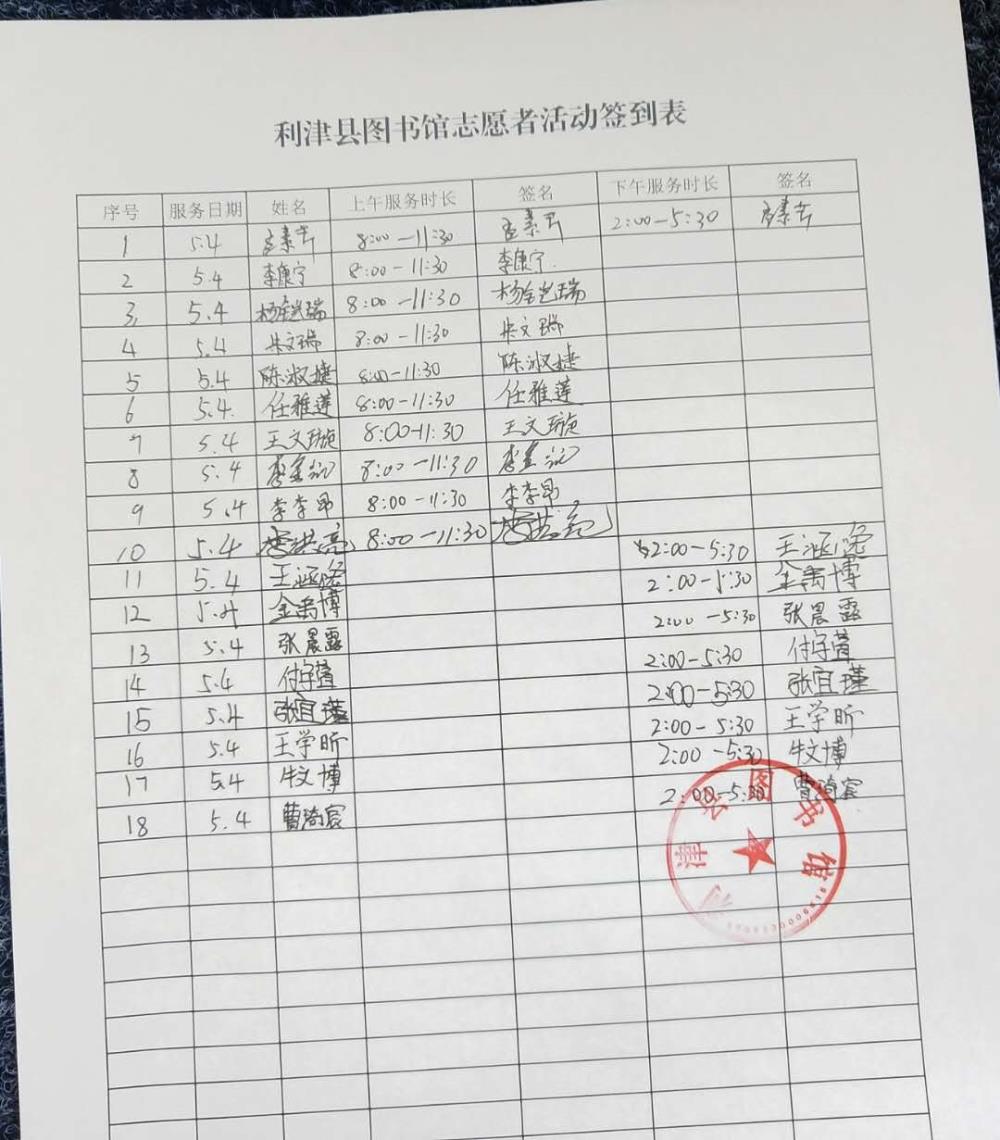 利津县图书馆志愿者活动签到表
序号 服务日期 姓名 上午服务时长 签名 下午服务时长 签名
1 5.4 8:00-11:30 2:00-5:30
2 5.4 李康宁 8:00-11:30 李康宁
3 5.4 8:00-11:30
4 5.4 朱文瑞 8:00-11:30 朱文瑞
5 5.4 陈淑捷 8:00-11:30 陈淑捷
6 5.4 任雅莲 8:00-11:30 任雅莲
7 5.4 王文璇 8:00-11:30 王文璇
8 5.4 8:00-11:30
9 5.4 李李昂 8:00-11:30 李李昂
10 5.4 李洪亮 8:00-11:30 李洪亮
11 5.4 2:00-5:30
12 5.4 金禹博 2:00-5:30 金禹博
13 5.4 张晨露 2:00-5:30 张晨露
14 5.4 付宇萱 2:00-5:30 付宇萱
15 5.4 张宜瑾 2:00-5:30 张宜瑾
16 5.4 王学昕 2:00-5:30 王学昕
17 5.4 牛文博 2:00-5:30 牛文博
18 5.4 曹琦宸 2:00-5:30 曹琦宸
津县图书馆